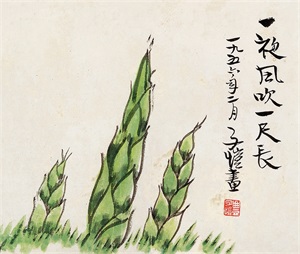 一夜风吹一尺长
一九五六年二月 子愷畫